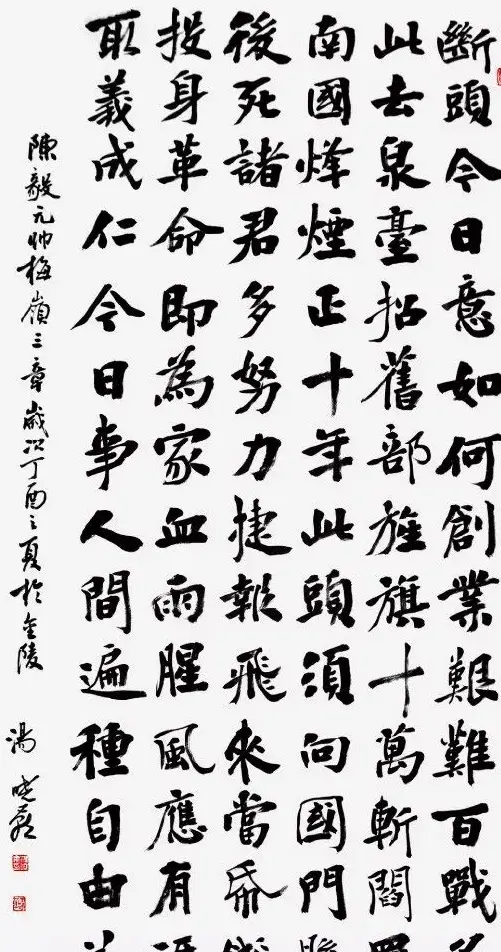 斷頭今日意如何創業艱難百戰
此去泉臺招舊部旌旗十萬斬閻
南國烽煙正十年此頭須向國門
後死諸君多努力捷報飛來當帋
投身革命即為家血雨腥風應有
取義成仁今日事人間遍種自由
陳毅元帥梅嶺三章歲次丁酉之夏於金陵
湯